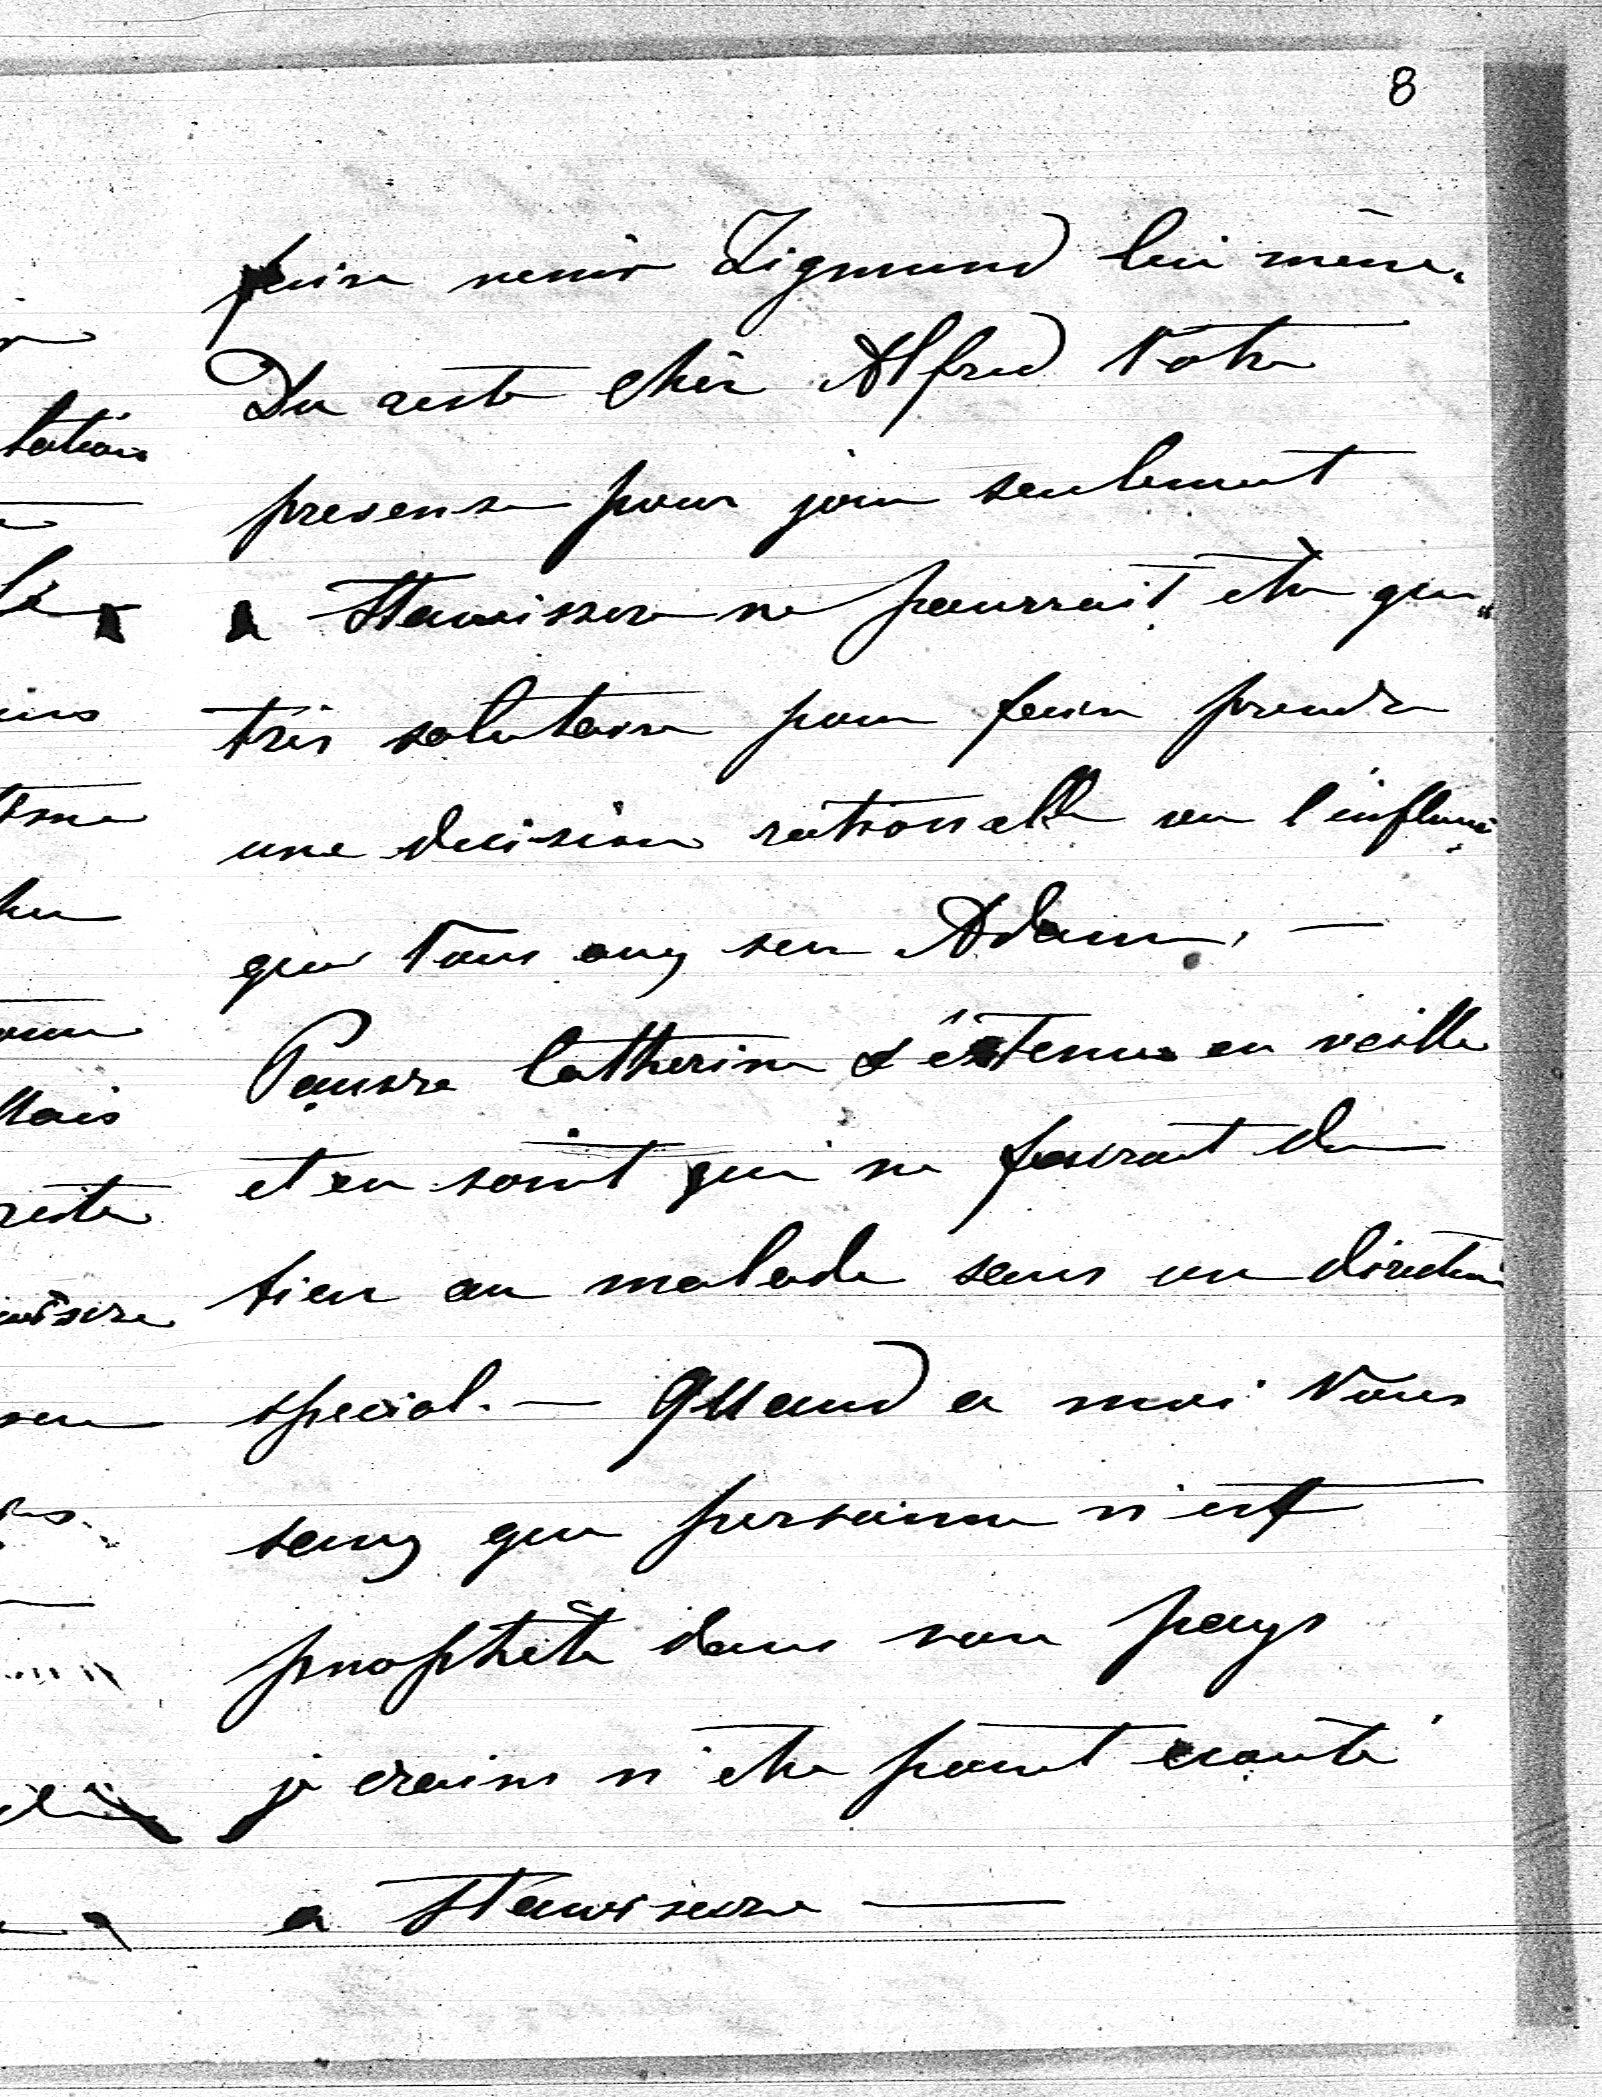 8
faire venir Zigmund lui même.
Du reste cher Alfred Votre
presense pour jour seulement
a Stawiszcze ne pourrait etre que
très salutaire pour faire prendre
une decision rationelle vu l'influence
que Vous avez sur Adam. —
Pauvre Catherine s'éxtenue en veille
et en soint qui ne feront du
bien au malade sans un directeur
special. — Quand a moi Vous
savez que personne n'est
prophète dans son pays
je crains n'etre point ecouté
a Stawiszcze —